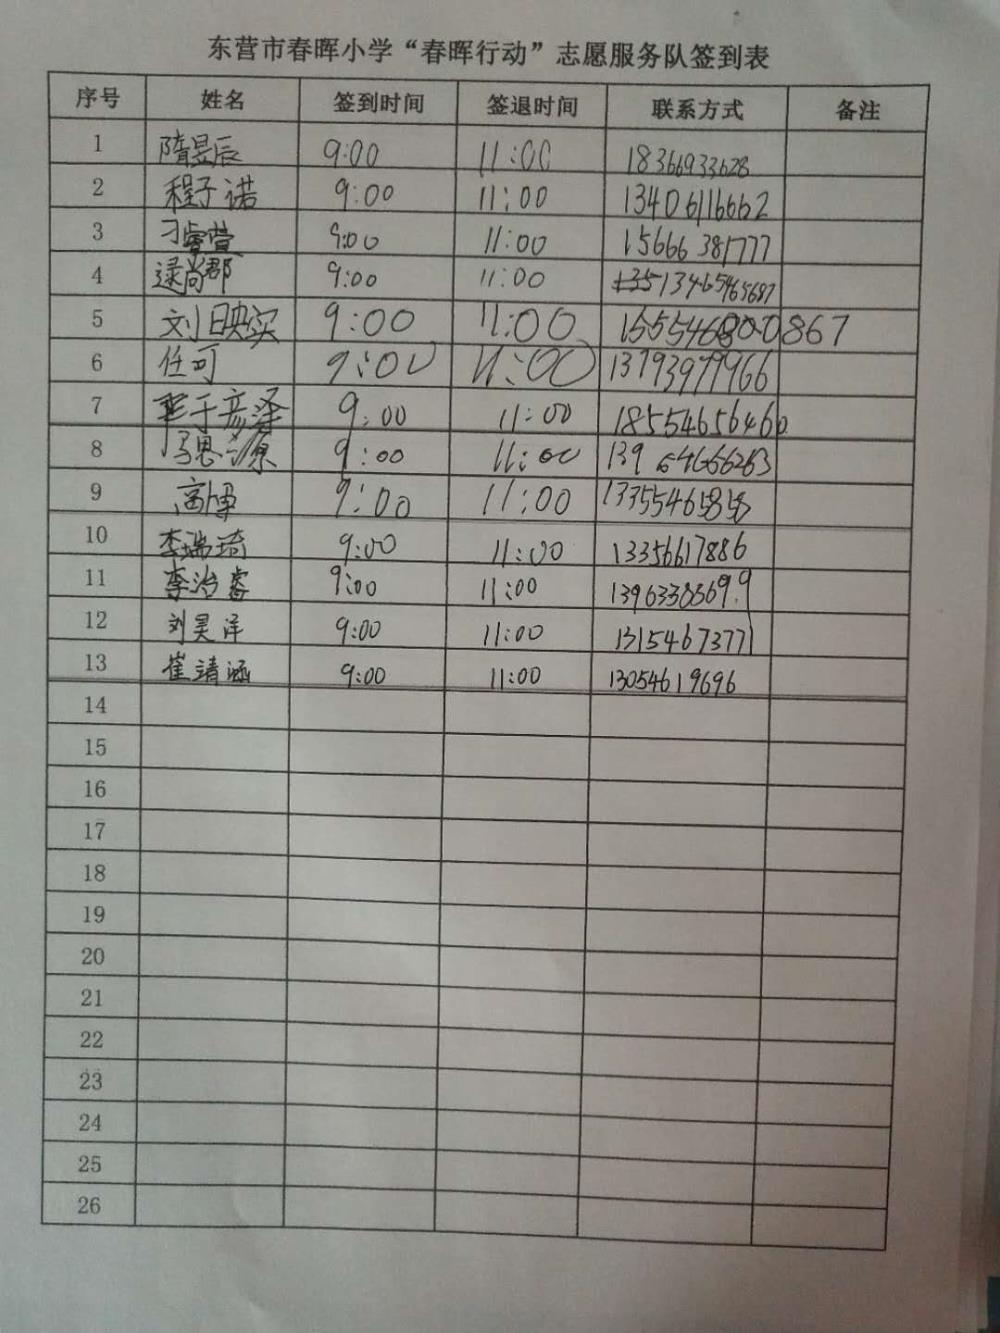 东营市春晖小学“春晖行动”志愿服务队签到表
序号 姓名 签到时间 签退时间 联系方式 备注
1 隋昱辰 9:00 11:00 18366933628
2 程子诺 9:00 11:00 13406116662
3 刁睿萱 9:00 11:00 15666381777
4 逯尚郡 9:00 11:00
5 刘映实 9:00 11:00 15554680867
6 任可 9:00 11:00 13793979966
7 于彦泽 9:00 11:00 18554656466
8 冯思源 9:00 11:00
9 高博 9:00 11:00 13355465858
10 李瑞琦 9:00 11:00 13356617886
11 李治睿 9:00 11:00
12 刘昊洋 9:00 11:00 13154673771
13 崔靖涵 9:00 11:00 13054619696
14
15
16
17
18
19
20
21
22
23
24
25
26